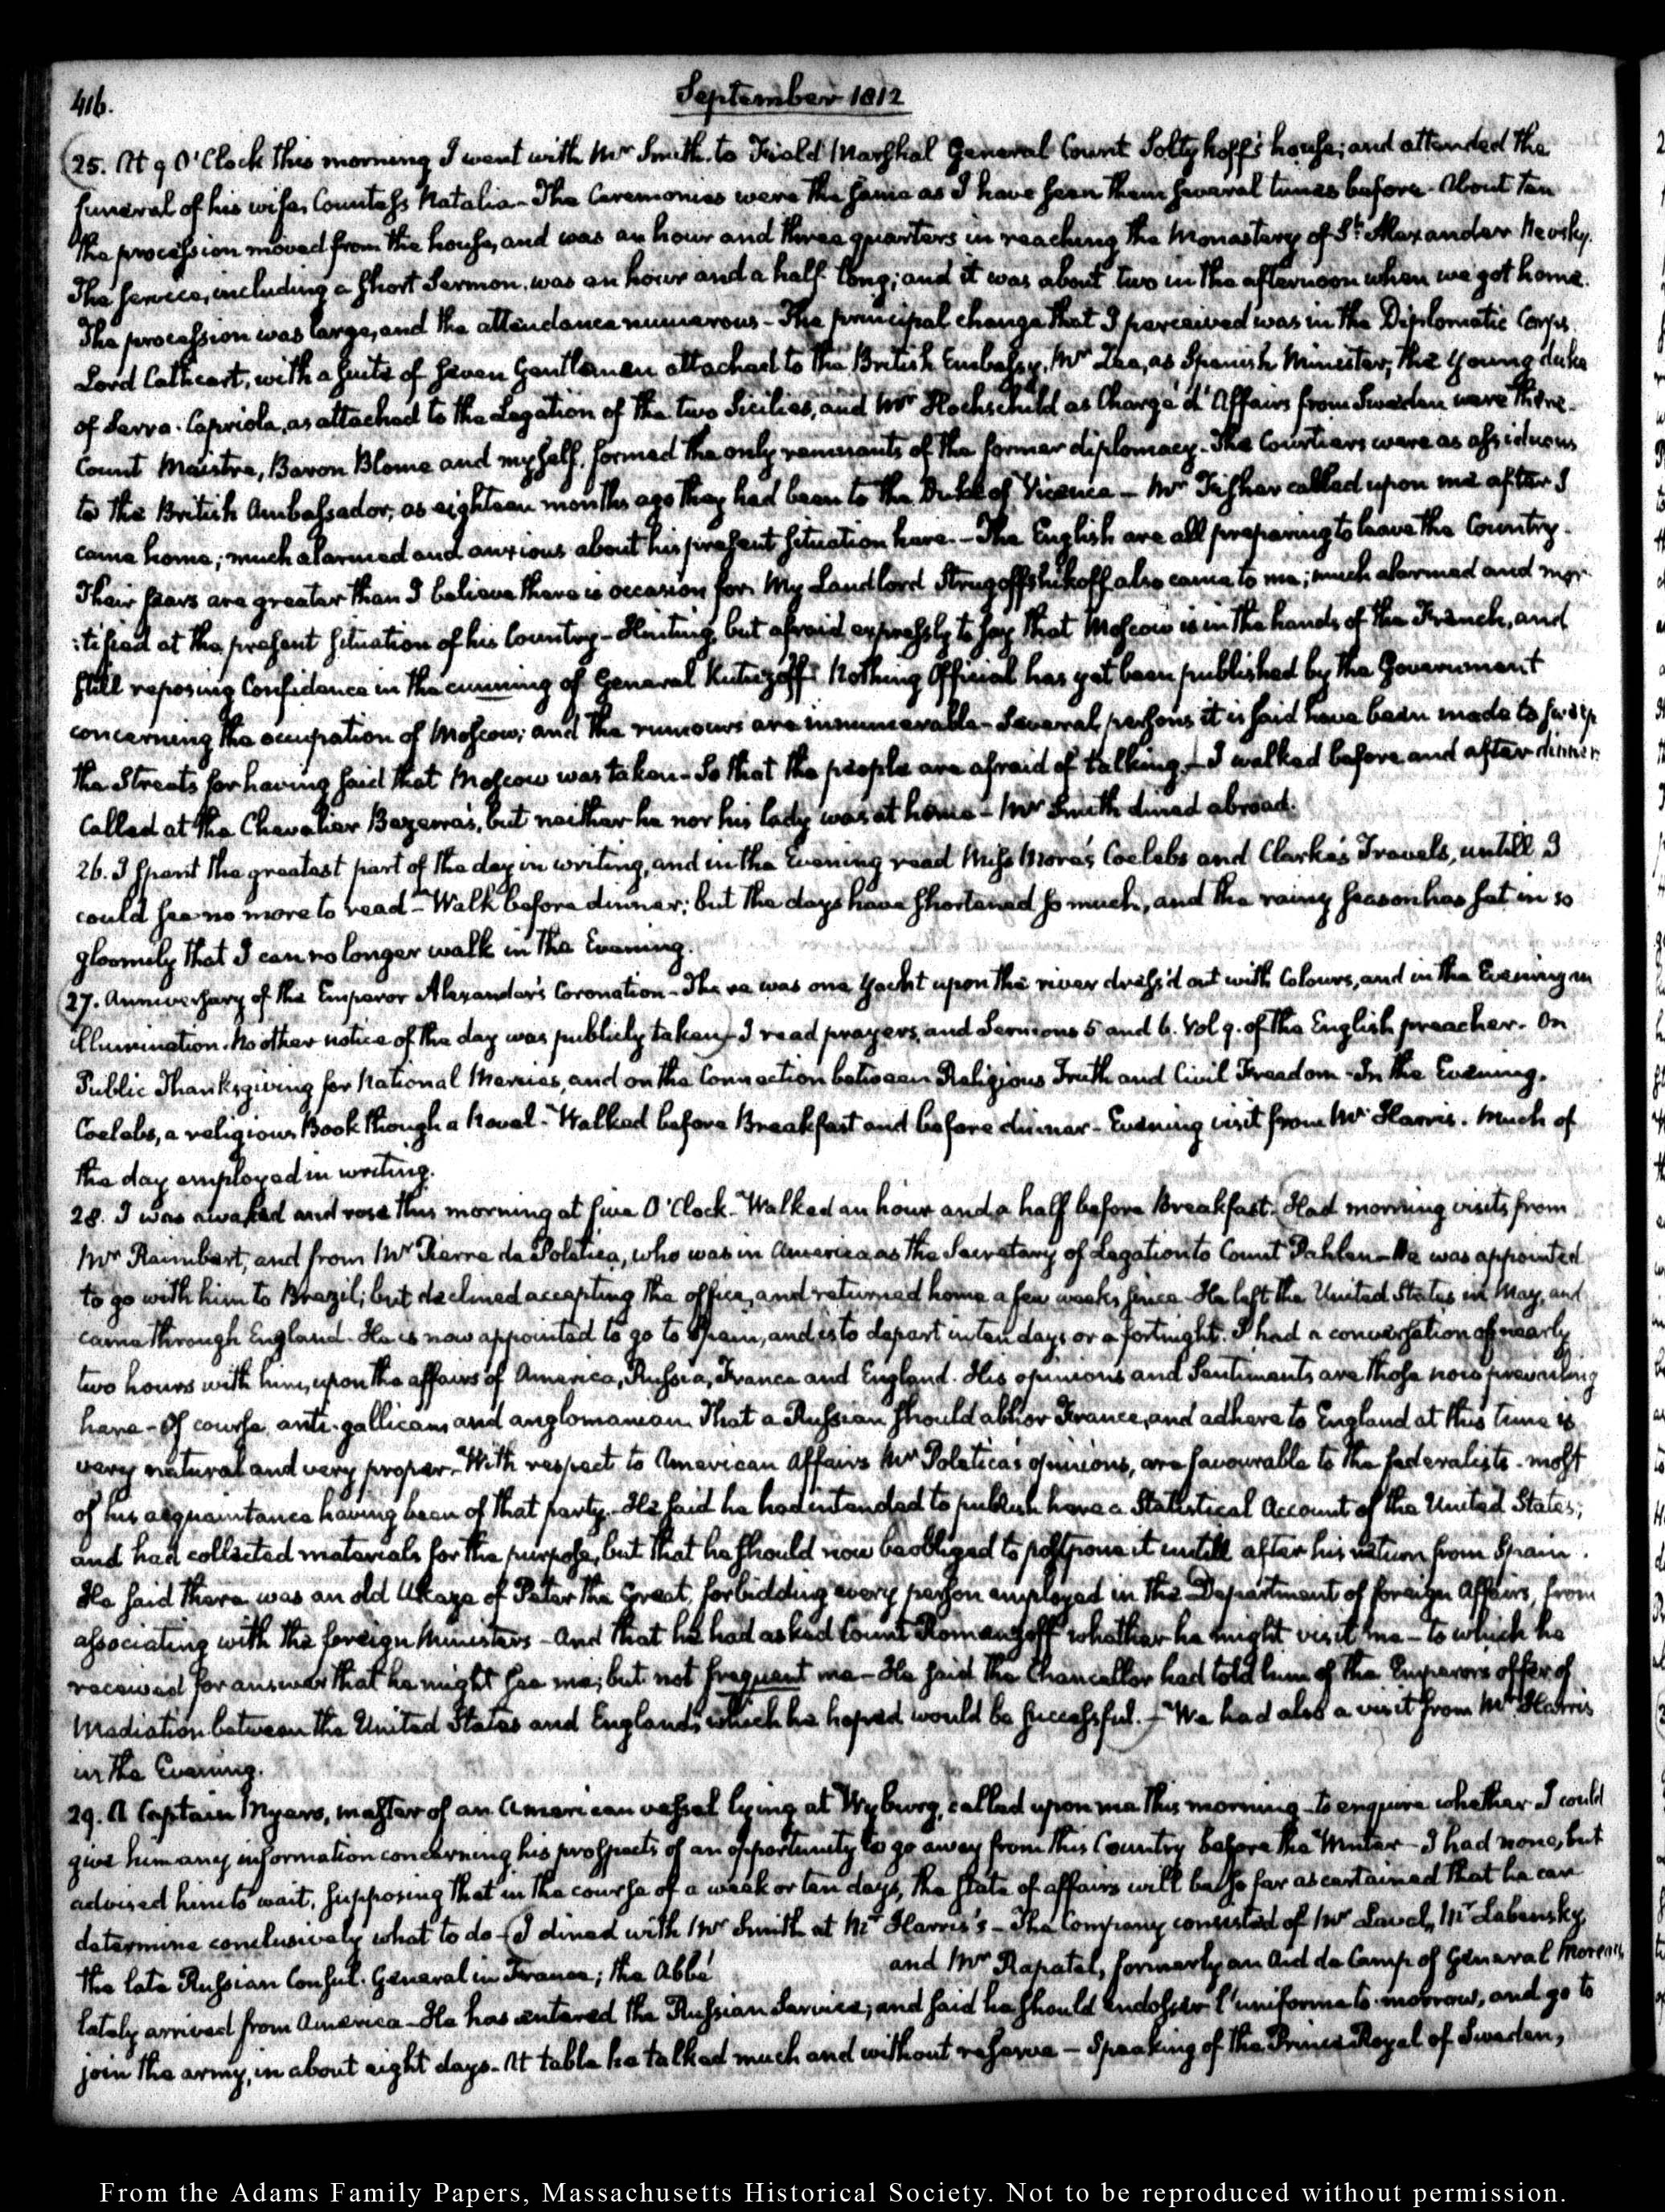 416.
September 1812
25. At 9 O'Clock this morning I went with Mr Smith to Field Marshal General Count Soltykoff's house; and attended the
funeral of his wife, Countess Natalia - The Ceremonies were the same as I have seen them several times before - About ten
the procession moved from the house, and was an hour and three quarters in reaching the Monastery of St. Alexander Nevsky.
The service, including a short Sermon, was an hour and a half long; and it was about two in the afternoon when we got home.
The procession was large, and the attendance numerous - The principal change that I perceived was in the Diplomatic Corps.
Lord Cathcart, with a suite of seven Gentlemen attached to the British Embassy, Mr Zea, as Spanish Minister, the young duke
of Serra-Capriola, as attached to the Legation of the two Sicilies, and Mr Hochschild as Chargé d'Affairs from Sweden were there.
Count Maistre, Baron Blome and myself, formed the only remnants of the former diplomacy. The Courtiers were as assiduous
to the British Ambassador, as eighteen months ago they had been to the Duke of Vicence - Mr Fisher called upon me after I
came home; much alarmed and anxious about his present situation here. - The English are all preparing to leave the Country.
Their fears are greater than I believe there is occasion for. My Landlord Strugoffshikoff also came to me; much alarmed and mor-
:tified at the present situation of his Country - Hinting, but afraid expressly to say that Moscow is in the hands of the French, and
still reposing Confidence in the cunning of General Kutuzoff. Nothing Official has yet been published by the Government
concerning the occupation of Moscow; and the rumours are innumerable - Several persons it is said have been made to sweep
the Streets for having said that Moscow was taken - So that the people are afraid of talking. - I walked before and after dinner
Called at the Chevalier Bezerra's, but neither he nor his lady was at home - Mr Smith dined abroad.
26. I spent the greatest part of the day in writing, and in the Evening read Miss More's Coelebs and Clarke's Travels, untill I
could see no more to read - Walk before dinner; but the days have shortened so much, and the rainy season has set in so
gloomily that I can no longer walk in the Evening.
27. Anniversary of the Emperor Alexander's Coronation - There was one yacht upon the river dress'd out with Colours, and in the Evening an
illumination. No other notice of the day was publicly taken - I read prayers, and Sermons 5 and 6. Vol 9. of the English preacher. On
Public Thanksgiving for National Mercies, and on the Connection between Religious Truth and Civil Freedom - In the Evening,
Coelebs, a religious Book though a Novel - Walked before Breakfast and before dinner - Evening visit from Mr Harris. Much of
the day employed in writing.
28. I was awaked and rose this morning at five O'Clock - Walked an hour and a half before Breakfast. Had morning visits from
Mr Raimbert, and from Mr Pierre de Poletica, who was in America as the Secretary of Legation to Count Pahlen - He was appointed
to go with him to Brazil; but declined accepting the office, and returned home a few weeks since. He left the United States in May, and
came through England. He is now appointed to go to Spain, and is to depart in ten days or a fortnight. I had a conversation of nearly
two hours with him, upon the affairs of America, Russia, France and England. His opinions and Sentiments are those now prevailing
here - Of course anti-gallican and anglomanian. That a Russian should abhor France, and adhere to England at this time is
very natural and very proper - With respect to American Affairs Mr Poletica's opinions, are favourable to the federalists - most
of his acquaintance having been of that party. He said he had intended to publish here a Statistical Account of the United States;
and had collected materials for the purpose, but that he should now be obliged to postpone it untill after his return from Spain.
He said there was an old Ukaze of Peter the Great, forbidding every person employed in the Department of foreign Affairs, from
associating with the foreign Ministers - And that he had asked Count Romanzoff whether he might visit me - to which he
received for answer that he might see me; but not frequent me - He said the Chancellor had told him of the Emperors offer of
Mediation between the United States and England, which he hoped would be successful. - We had also a visit from Mr Harris
in the Evening.
29. A Captain Myers, master of an American vessel lying at Wyburg, called upon me this morning - to enquire whether I could
give him any information concerning his prospects of an opportunity to go away from this Country before the Winter - I had none, but
advised him to wait, supposing that in the course of a week or ten days, the state of affairs will be so far ascertained that he can
determine conclusively what to do - I dined with Mr Smith at Mr Harris's - The Company consisted of Mr Laval, Mr Labensky
the late Russian Consul-General in France; the Abbé and Mr Rapatel, formerly an Aid de Camp of General Moreau,
lately arrived from America - He has entered the Russian Service; and said he should endosser l'uniforme to-morrow, and go to
join the army, in about eight days - At table he talked much and without reserve - Speaking of the Prince Royal of Sweden,
From the Adams Family Papers, Massachusetts Historical Society. Not to be reproduced without permission.